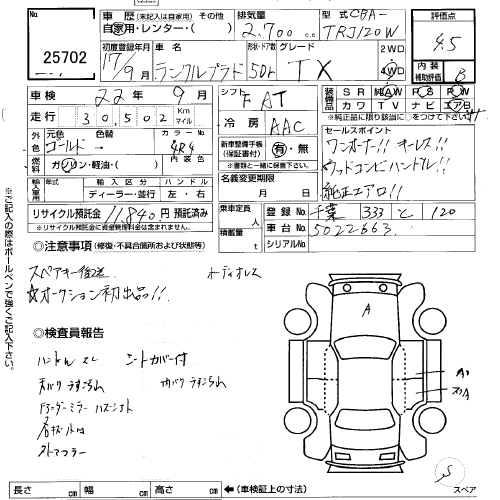 No. 25702
車歴 (未記入は自家用) その他
自家用・レンタカー・( )
排気量 2,700 cc
型式 CBA-TRJ120W
評価点 4.5
初度登録年月 17/9月
車名 ランクルプラド
形状・ドア数 5Dr
グレード TX
2WD
4WD
内装補助評価 B
車検 22年9月
シフト FAT
装備品 SR AW PS PW
カワ TV ナビ エアB
※純正品に限り該当に○をつけて下さい
走行 30,502 Km マイル
冷房 AAC
セールスポイント
ワンオーナー!! キーレス!!
ウッドコンビハンドル!!
純正エアロ!!
外色 元色 ゴールド→ 色替
カラーNo. 4R4
内装色
燃料 ガソリン・軽油・( )
新車整備手帳(保証書付) 有・無
※書類と一緒に保管下さい。
名義変更期限 月 日
輸入車用 年式 輸入区分 ディーラー・並行 ハンドル 左・右
リサイクル預託金 11,840円 預託済み
※リサイクル預託金に資金管理料金は含まれません。
乗車定員 人
積載量 t
登録No. 千葉 333 て 120
車台No. 5022663
シリアルNo.
◎注意事項 (修復・不具合箇所および状態等)
スペアキー後送 オーディオレス
☆オークション初出品!!
◎検査員報告
ハンドル スレ シートカバー付
※ご記入の際はボールペンで強くご記入下さい。
A
A1
S
スペア
長さ cm 幅 cm 高さ cm ←(車検証上の寸法)